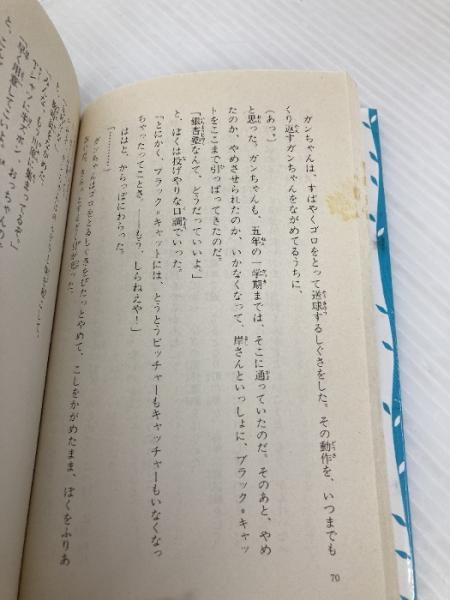 ガンちゃんは、すばやくゴロをとって送球するしぐさをした。その動作を、いつまでも
くり返すガンちゃんをながめてるうちに、
(あっ。)
と思った。ガンちゃんも、五年の一学期までは、そこに通っていたのだ。そのあと、やめ
たのか、やめさせられたのか、いかなくなって、岸さんといっしょに、ブラック＝キャッ
トをここまで引っぱってきたのだ。
「銀杏塾なんて、どうだっていいよ。」
と、ぼくは投げやりな口調でいった。
「とにかく、ブラック＝キャットには、とうとうピッチャーもキャッチャーもいなくなっ
ちゃったってことさ――もう、しらねえや!」
ははと、からっぽにわらった。
「…………」
ガンちゃんはゴロをとるしぐさをぴたっとやめて、こしをかがめたまま、ぼくをふりあ
70